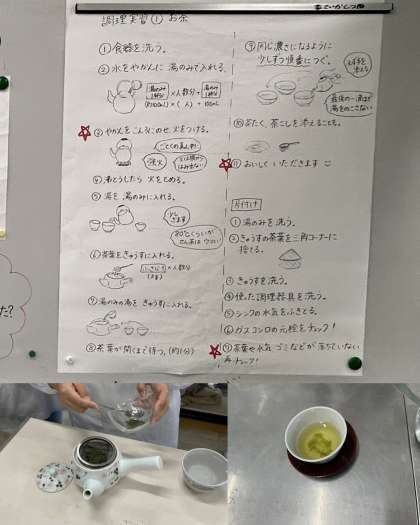 調理実習① お茶
①食器を洗う。
②水をやかんに 湯のみで入れる。
湯のみ
1杯分
×人数分+
湯のみ
1杯分
(約100mL)×( 人) + 100mL
③やかんをこんろにのせ 火をつける。
ごとくの真ん中に
強火
④ふっとうしたら 火をとめる。
⑤湯を 湯のみに入れる。
少し
さます
80℃くらいが
せん茶は ウマい!
⑥茶葉をきゅうすに入れる。
×人数分
⑦湯のみの湯を きゅうすに入れる。
⑧茶葉が開くまで待つ。(約1分)
⑨同じ濃さになるように
少しずつ順番につぐ。
最後の一滴まで
湯をのこさない
⑩ふたく、茶こしを添えることも。
⑪おいしく いただきます
片付け
①湯のみを洗う。
②きゅうすの茶葉を三角コーナーに
捨てる。
③きゅうすを洗う。
④使った調理器具を洗う。
⑤シンクの水気をふきとる。
⑥ガスコンロの元栓をチェック!
⑦茶葉や水気 ゴミなどが落ちていない
再チェック!
た?